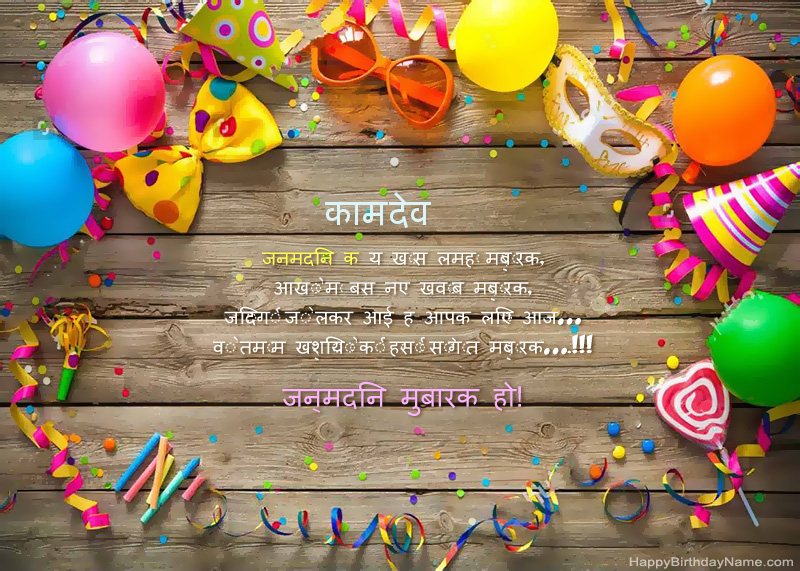 कामदेव
जनमदनि क य खास लमह मबारक,
आखाेम बस नए खवाब मबारक,
जदिगी जाेलकर आई ह आपक लएि आज...
वाेतमाम खशयिाेकी हसी साैगात मबारक...!!!
जन्मदनि मुबारक हो!
HappyBirthdayName.com